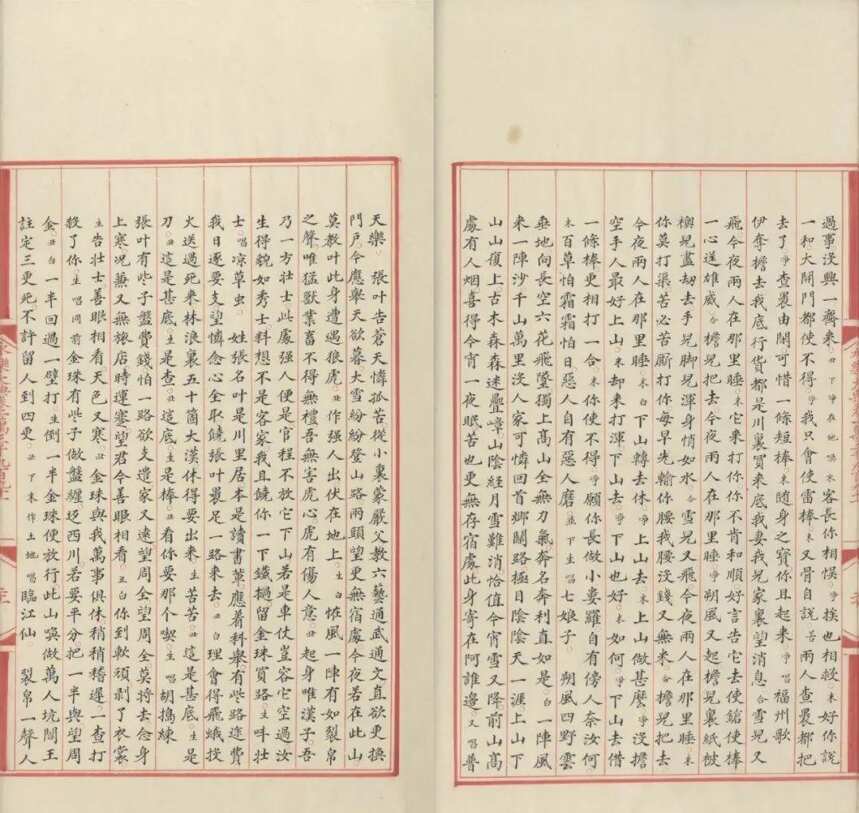 過事沒興一齊來丑下净在地喊末客長你相悞净挨也相救末好你說
一和大開門都使不得净我只會使雷棒末又骨自說苦兩人查裹都把
去了净查裹由閑可惜一條短棒末隨身之寳你且起來净唱福州歌
伊奪擔去我底行貨都是川裏買來底我妻我兒家裏望消息合雪兒又
飛今夜兩人在那里睡末它來打你你不肯和順好言告它去使鎗使棒
一心逞雄威合擔兒把去今夜兩人在那里睡净朔風又起擔兒裏紙被
襖兒盡劫去手兒脚兒渾身悄如水合雪兒又飛今夜兩人在那里睡末
你莫打渠苦必苦厮打你每早先輸你腰我腰沒錢又無米合擔兒把去
今夜兩人在那里睡末下山轉去休净上山去末上山做甚麽净沒擔
空手人最好上山末却來打渾下山去净下山也好末如何净下山去借
一條棒更相打一合末你使不得净願你長做小婁羅自有傍人奈汝何
末百草怕霜霜怕日惡人自有惡人磨並下生唱七娘子 朔風四野雲
垂地向長空六花飛墜獨上高山全無刀氣奔名奔利直如是白一陣風
來一陣沙千山萬里沒人家可憐回首鄉關路極目陰陰天一涯上山下
山山復上古木森森迷疊嶂山陰經月雪難消恰值今宵雪又降前山高
處有人烟喜得今宵一夜眠苦也更無存宿處此身寄在阿誰邊又唱普
天樂 張叶告蒼天憐孤苦從小裏蒙嚴父教六藝通武通文直欲更換
門户今應舉天欲暮大雪紛紛登山路兩頭望更無宿處今夜若在此山
莫教叶此身遭遇狼虎丑作强人出伏在地上生白恠風一陣有如裂帛
之聲唯猛獸業畜不得無禮吾無害虎心虎有傷人意丑起身唯漢子吾
乃一方壯士此處强人便是官程不放它下山若是車仗豈容它空過汝
生得貌如秀士料想不是客家我且饒你一下鐵撾留金珠買路生吽壯
士唱凉草虫 姓張名叶是川里居本是讀書輩應着科舉有些路途費
我日逐要支望憐念心全取饒張叶裹足一路來去丑白理會得飛蛾投
火送過死來林浪裏五十箇大漢休得要出來生苦苦丑這是甚底生是
刀丑這是甚底生是查丑這底生是棒丑看你要那个喫生唱胡擣練
張叶有些子盤費錢怕一路欲支遣家又遠望周全望周全莫將去念身
上寒况兼又無旅店時運蹇望君今善眼相看丑白你到軟頑剥了衣裳
生告壯士善眼相看天色又寒丑金珠與我萬事俱休稍稍稽遲一查打
殺了你生唱同前金珠有些子做盤纏迄西川若要平分把一半與望周
全丑白一半回過一壁打生倒一半金珠便放行此山喫做萬人坑閻王
註定三更死不許留人到四更丑下末作土地唱臨江仙 裂帛一聲人